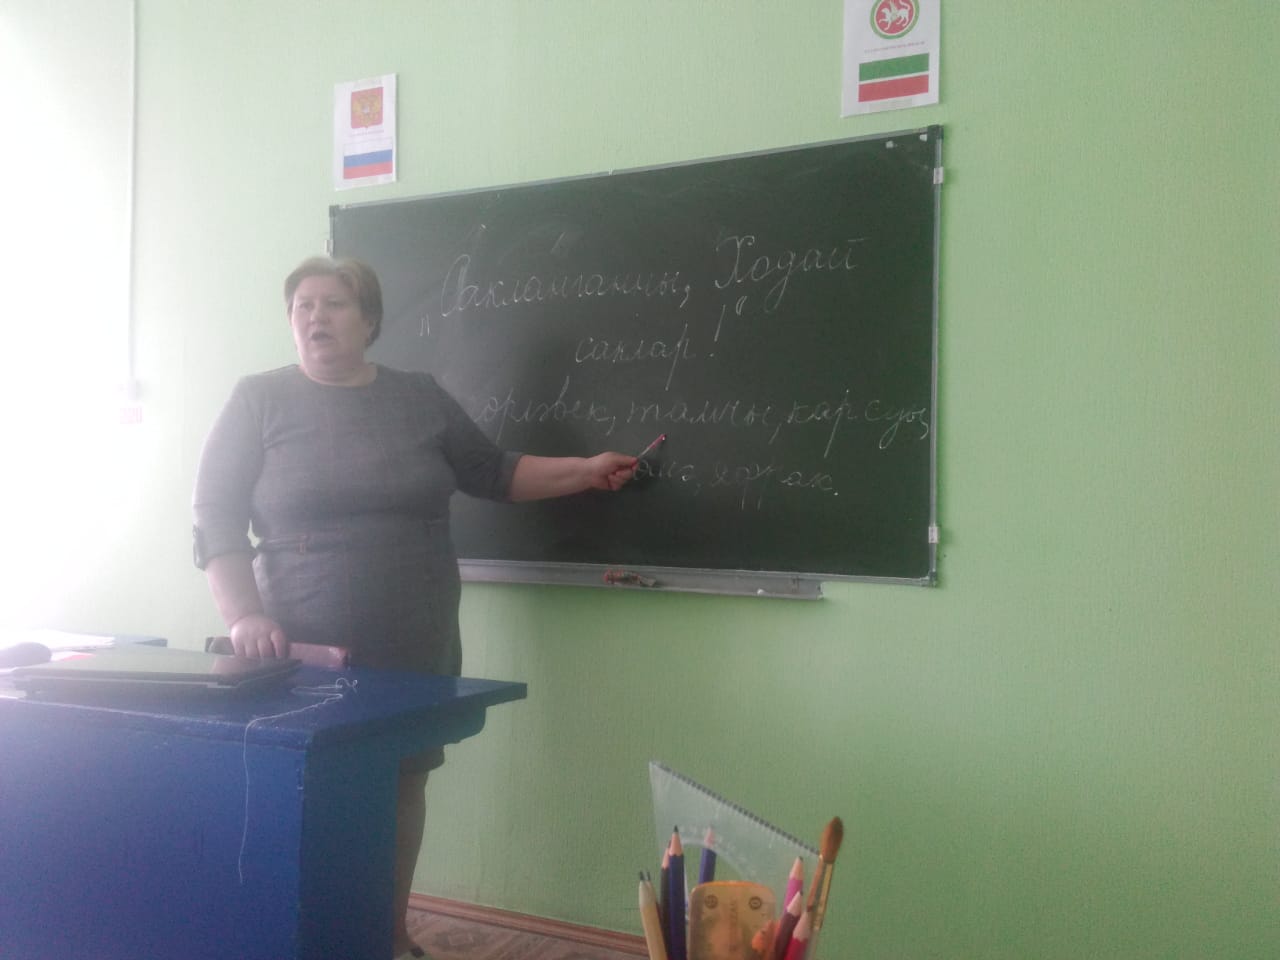 „Сакланганны, Ходай
саклар!“
тамчы, кар суы,
яфрак.